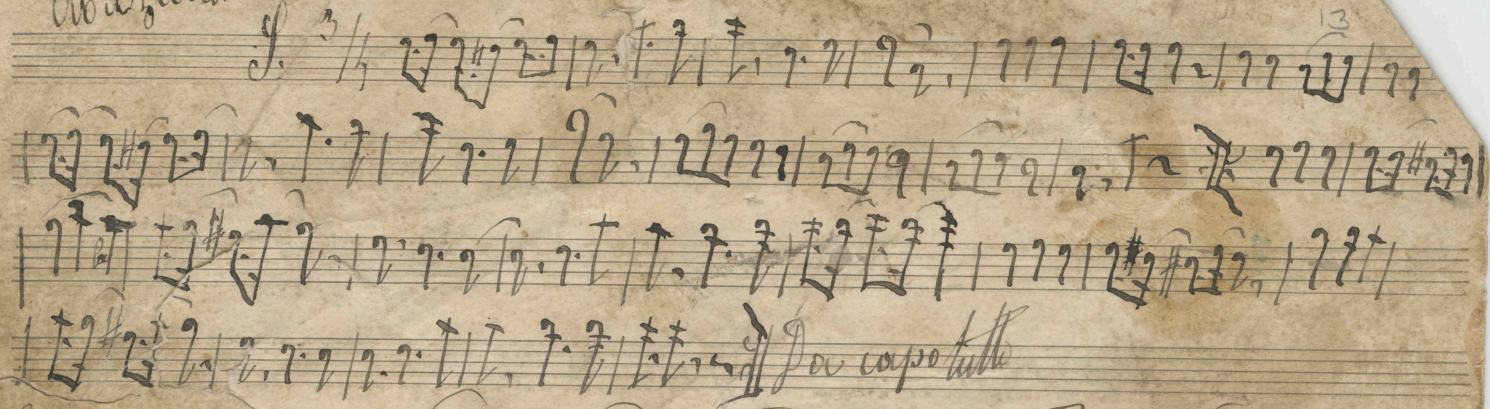 13
3/4
Da capo tutto